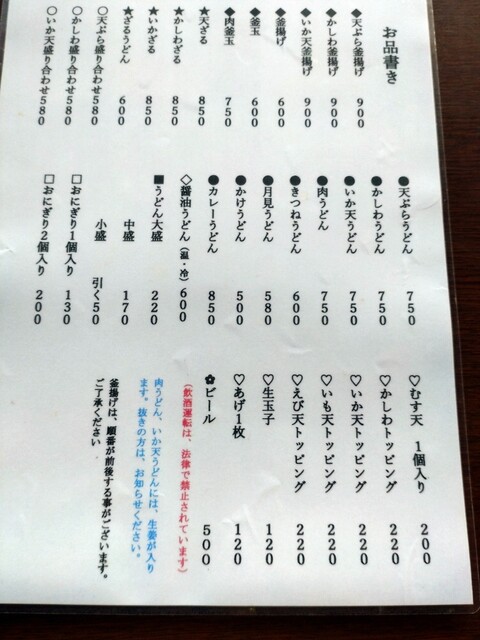 お品書き
◆天ぷら釜揚げ 900
◆かしわ釜揚げ 900
◆いか天釜揚げ 900
◆釜揚げ 600
◆釜玉 600
◆肉釜玉 750
★天ざる 850
★かしわざる 850
★いかざる 850
★ざるうどん 600
○天ぷら盛り合わせ580
○かしわ盛り合わせ580
○いか天盛り合わせ580
●天ぷらうどん 750
●かしわうどん 750
●いか天うどん 750
●肉うどん 750
●きつねうどん 600
●月見うどん 580
●かけうどん 500
●カレーうどん 850
◇醤油うどん(温・冷) 600
■うどん大盛 220
中盛 170
小盛 引く50
□おにぎり1個入り 130
□おにぎり2個入り 200
♡むす天 1個入り 200
♡かしわトッピング 220
♡いか天トッピング 220
♡いも天トッピング 220
♡えび天トッピング 220
♡生玉子 120
♡あげ1枚 120
✿ビール 500
(飲酒運転は、法律で禁止されています)
肉うどん、いか天うどんには、生姜が入り
ます。抜きの方は、お知らせください。
釜揚げは、順番が前後する事がございます。
ご了承ください